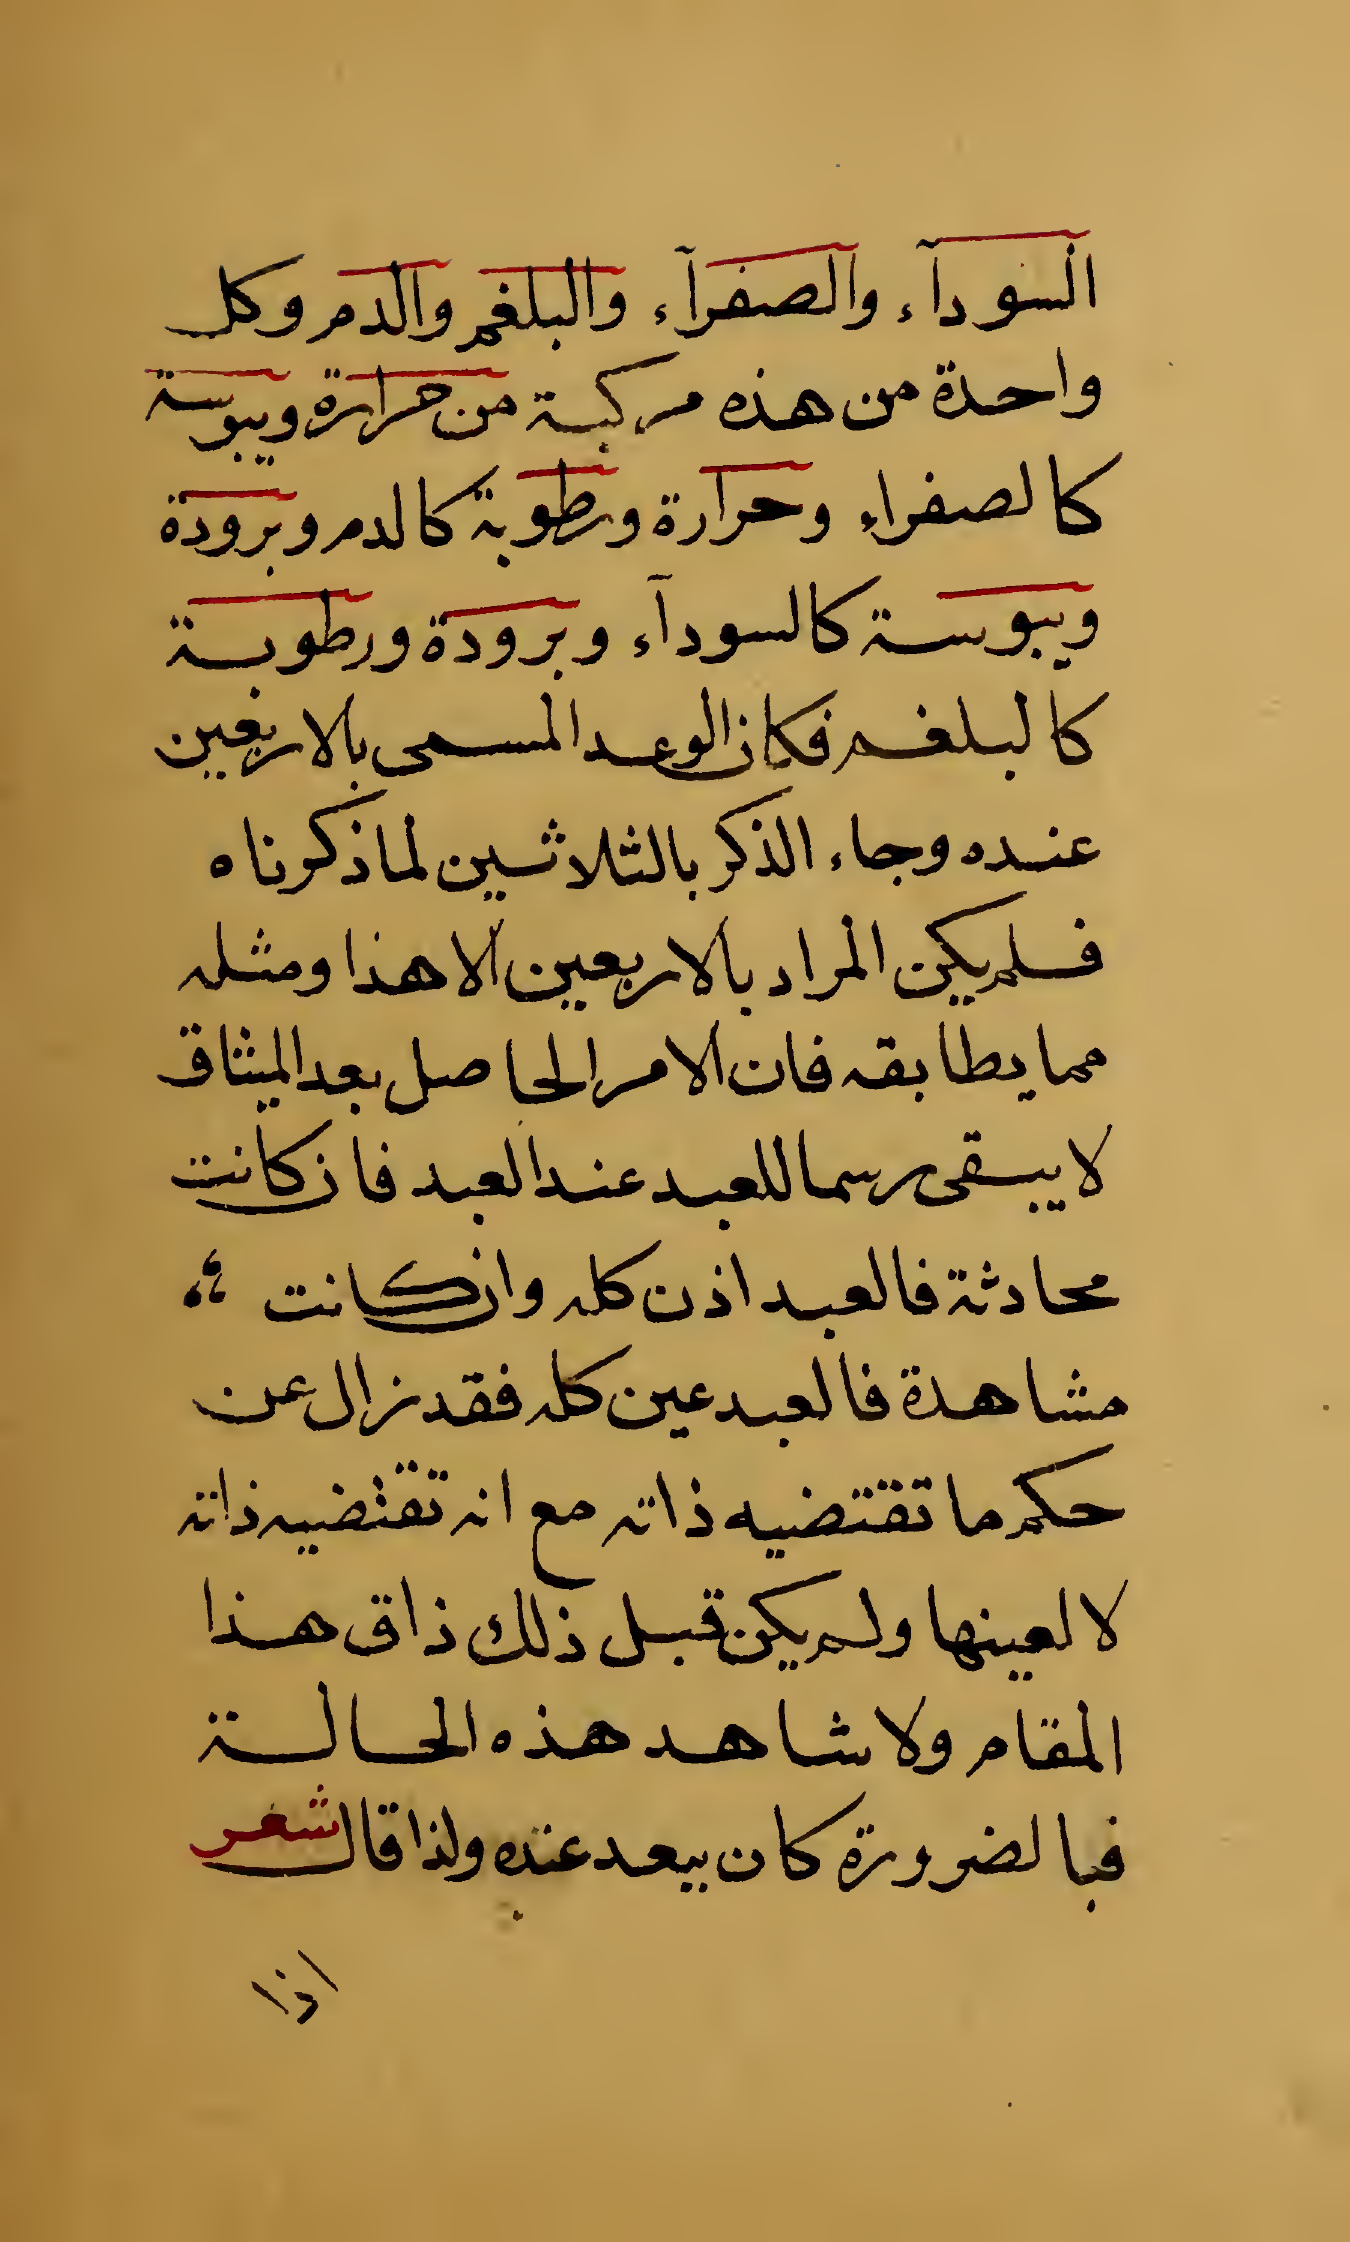 السودآء والصفرآء والبلغم والدم وكل
واحدة من هذه مركبة من حرارة ويبوسة
كالصفراء وحرارة ورطوبة كالدم وبرودة
ويبوسة كالسودآء وبرودة ورطوبة
كالبلغم فكان الوعد المسمى بالاربعين
عنده وجاء الذكر بالثلاثين لما ذكرناه
فلم يكن المراد بالاربعين الا هذا ومثله
مما يطابقه فان الامر الحاصل بعد الميثاق
لا يبقى رسما للعبد عند العبد فان كانت
محادثة فالعبد اذن كله وان كانت
مشاهدة فالعبد عين كله فقد زال عن
حكم ما تقتضيه ذاته مع انه تقتضيه ذاته
لا لعينها ولم يكن قبل ذلك ذاق هذا
المقام ولا شاهد هذه الحالة
فبالضرورة كان يبعد عنده ولذا قال شعر
اذا